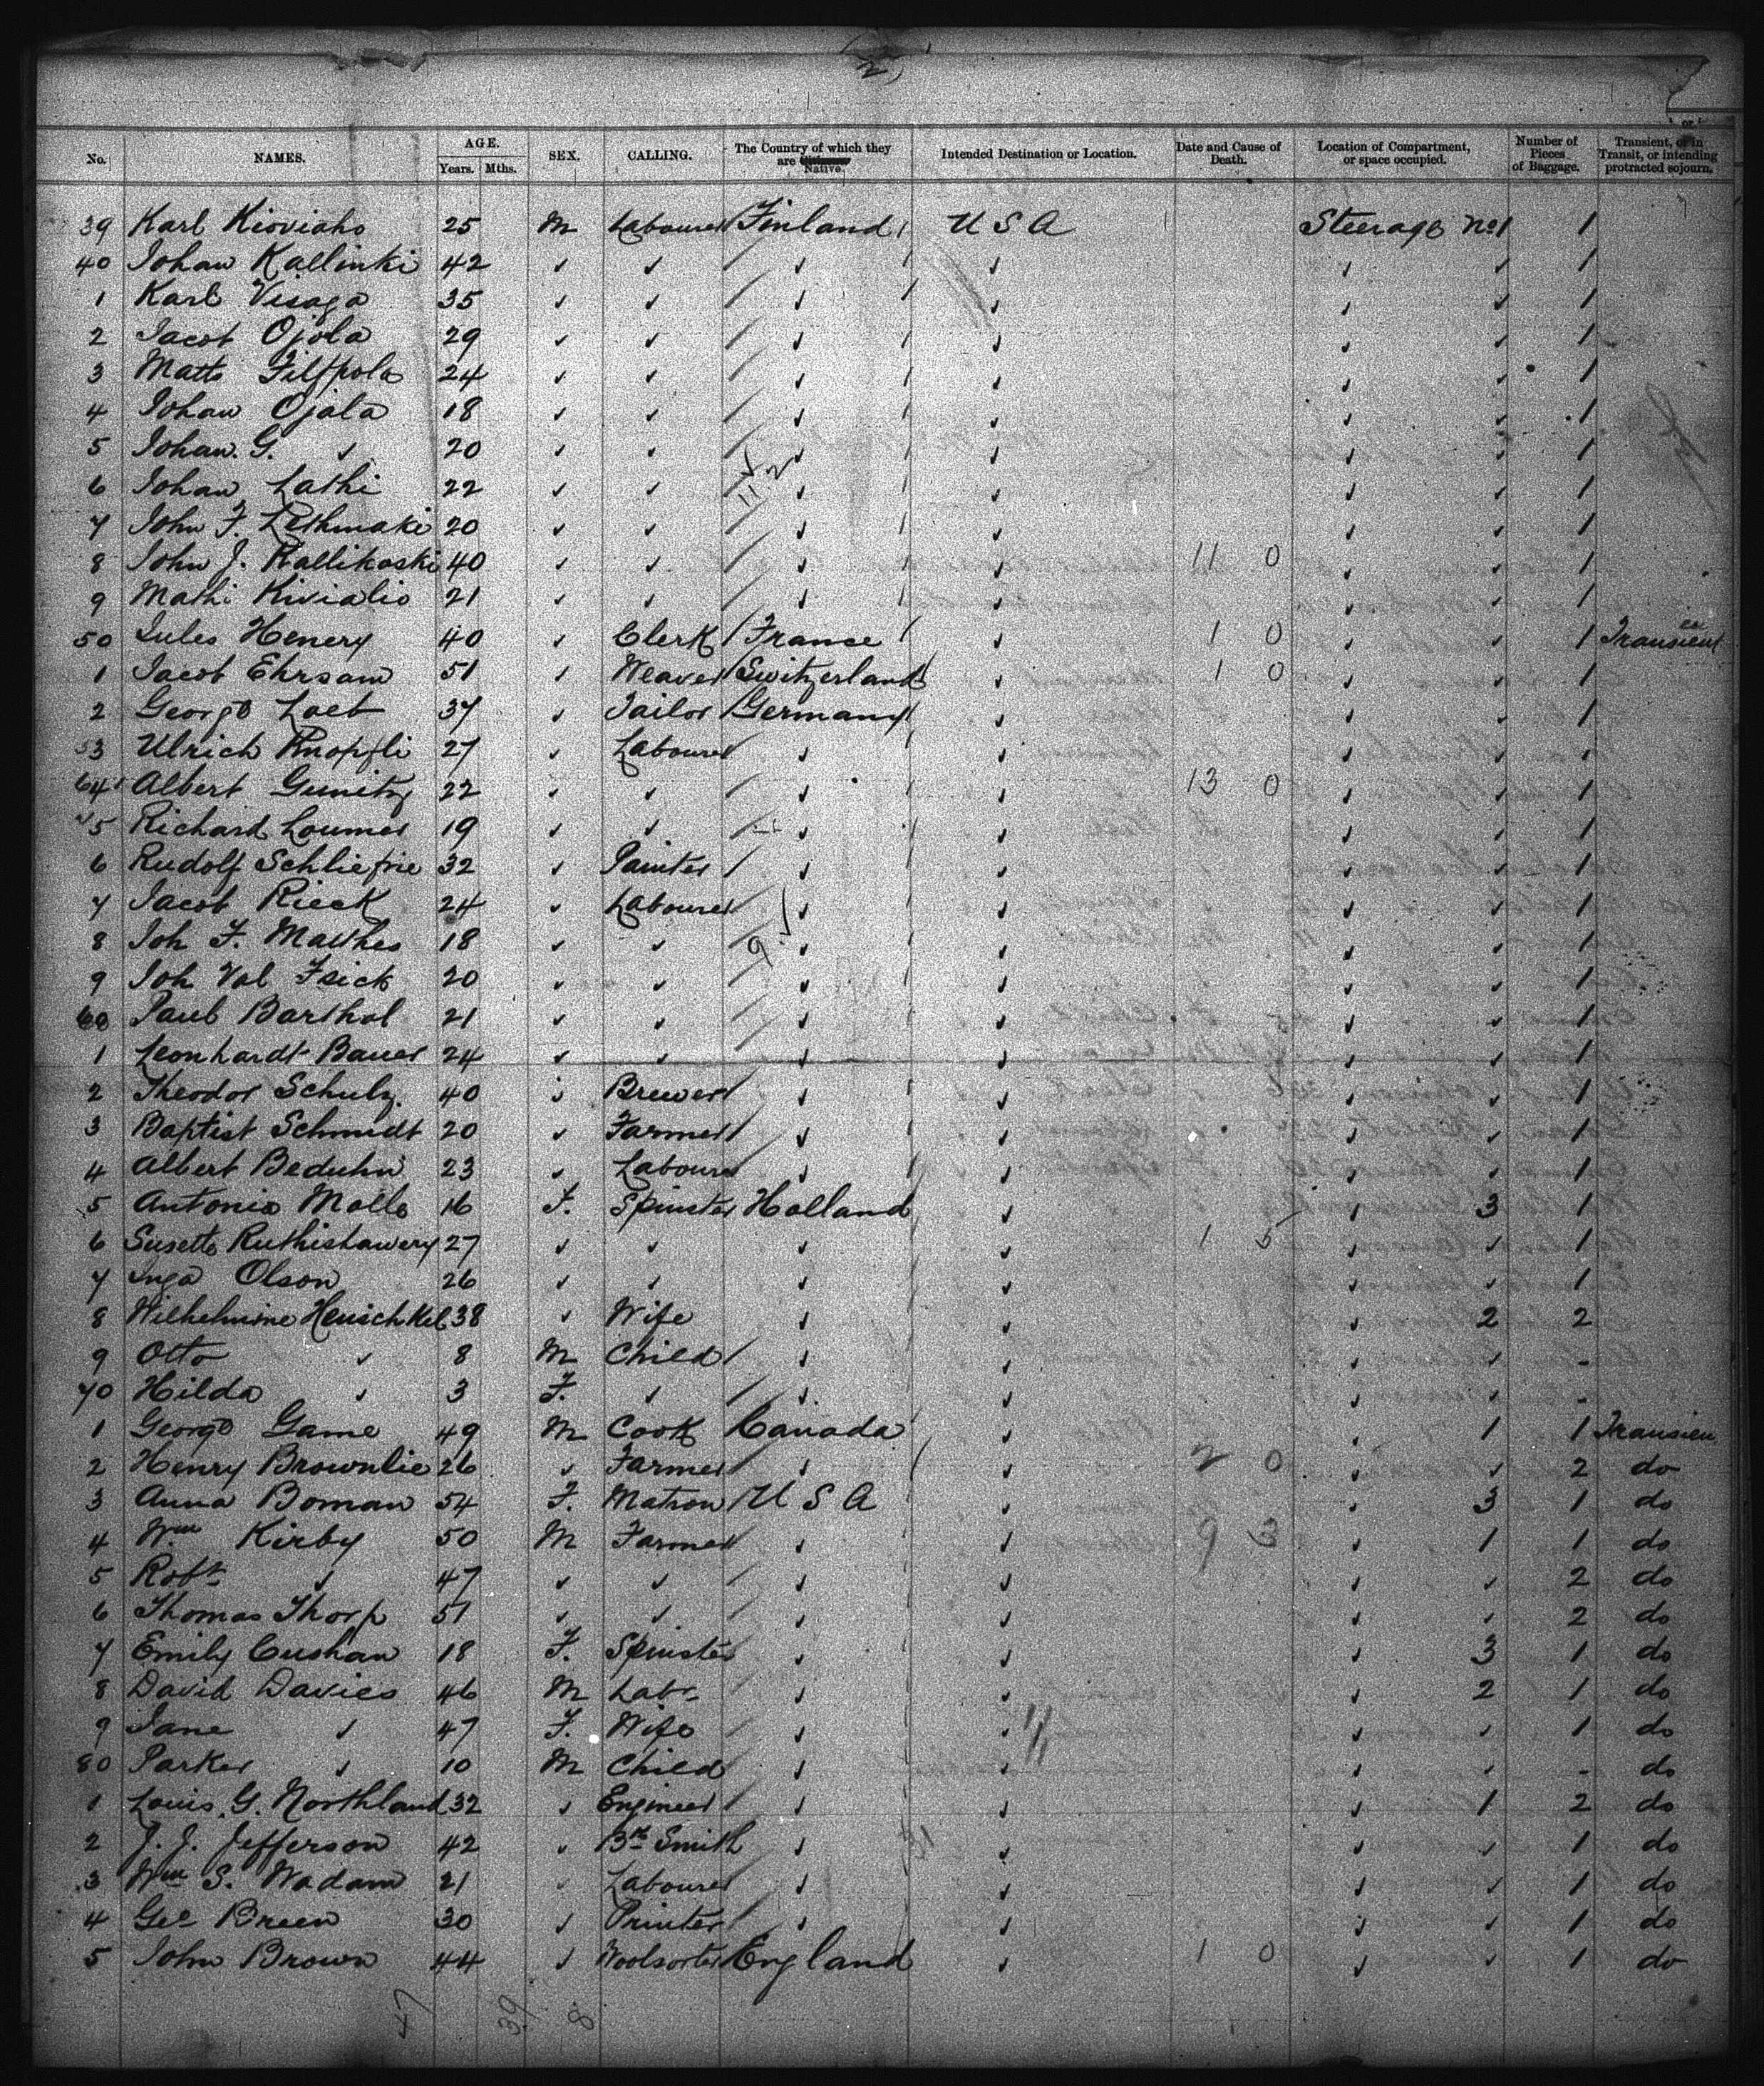 2
No. NAMES. AGE. Years. Mths. SEX. CALLING. The Country of which they are Native. Intended Destination or Location. Date and Cause of Death. Location of Compartment, or space occupied. Number of Pieces of Baggage. Transient, or in Transit, or intending protracted sojourn.
39 Karl Kioviaho 25 M Labourer Finland U S A Steerage No 1 1
40 Johan Kallinki 42 ✓ ✓ ✓ ✓ ✓ ✓ 1
1 Karl Visaga 35 ✓ ✓ ✓ ✓ ✓ ✓ 1
2 Jacob Ojola 29 ✓ ✓ ✓ ✓ ✓ ✓ 1
3 Matts Filppola 24 ✓ ✓ ✓ ✓ ✓ ✓ 1
4 Johan Ojala 18 ✓ ✓ ✓ ✓ ✓ ✓ 1
5 Johan. G. ✓ 20 ✓ ✓ ✓ ✓ ✓ ✓ 1
6 Johan Lathi 22 ✓ ✓ ✓ ✓ ✓ ✓ 1
7 John F. Lethmaki 20 ✓ ✓ ✓ ✓ ✓ ✓ 1
8 John J. Kallikoski 40 ✓ ✓ ✓ ✓ 11 0 ✓ ✓ 1
9 Mathi Kivialio 21 ✓ ✓ ✓ ✓ ✓ ✓ 1
50 Jules Henery 40 ✓ Clerk France ✓ 1 0 ✓ ✓ 1 Transient
1 Jacob Ehrsam 51 ✓ Weaver Switzerland ✓ 1 0 ✓ ✓ 1
2 George Loeb 37 ✓ Tailor Germany ✓ ✓ ✓ 1
53 Ulrich Knopfli 27 ✓ Labourer ✓ ✓ ✓ ✓ 1
54 Albert Gunitz 22 ✓ ✓ ✓ ✓ 13 0 ✓ ✓ 1
5 Richard Loumer 19 ✓ ✓ ✓ ✓ ✓ ✓ 1
6 Rudolf Schliefrie 32 ✓ Painter ✓ ✓ ✓ ✓ 1
7 Jacob Rieck 24 ✓ Labourer ✓ ✓ ✓ ✓ 1
8 Joh F. Matthes 18 ✓ ✓ ✓ ✓ ✓ ✓ 1
9 Joh Val Frick 20 ✓ ✓ ✓ ✓ ✓ ✓ 1
60 Paul Barthol 21 ✓ ✓ ✓ ✓ ✓ ✓ 1
1 Leonhardt Bauer 24 ✓ ✓ ✓ ✓ ✓ ✓ 1
2 Theodor Schulz. 40 ✓ Brewer ✓ ✓ ✓ ✓ 1
3 Baptist Schmidt 20 ✓ Farmer ✓ ✓ ✓ ✓ 1
4 Albert Beduhn 23 ✓ Labourer ✓ ✓ ✓ ✓ 1
5 Antonie Molle 16 F. Spinster Holland ✓ ✓ 3 1
6 Susette Ruthishawery 27 ✓ ✓ ✓ ✓ 1 5 ✓ ✓ 1
7 Inga Olson 26 ✓ ✓ ✓ ✓ ✓ ✓ 1
8 Wilhelmine Henschkel 38 ✓ Wife ✓ ✓ ✓ 2 2
9 Otto ✓ 8 M Child ✓ ✓ ✓ ✓ -
70 Hilda ✓ 3 F. ✓ ✓ ✓ ✓ ✓ -
1 George Game 49 M Cook Canada ✓ ✓ 1 1 Transien
2 Henry Brownlie 26 ✓ Farmer ✓ ✓ 2 0 ✓ ✓ 2 do
3 Anna Boman 54 F. Matron U S A ✓ ✓ 3 1 do
4 Wm Kirby 50 M Farmer ✓ ✓ 9 3 ✓ 1 1 do
5 Robt ✓ 47 ✓ ✓ ✓ ✓ ✓ ✓ 2 do
6 Thomas Thorp 51 ✓ ✓ ✓ ✓ ✓ ✓ 2 do
7 Emily Cushan 18 F. Spinster ✓ ✓ ✓ 3 1 do
8 David Davies 46 M Labr ✓ ✓ ✓ 2 1 do
9 Jane ✓ 47 F. Wife ✓ ✓ ✓ ✓ 1 do
80 Parker ✓ 10 M Child ✓ ✓ ✓ ✓ - do
1 Louis. G. Northland 32 ✓ Engineer ✓ ✓ ✓ 1 2 do
2 J. J. Jefferson 42 ✓ Bk Smith ✓ ✓ ✓ ✓ 1 do
3 Wm S. Wadam 21 ✓ Labourer ✓ ✓ ✓ ✓ 1 do
4 Geo Breen 30 ✓ Printer ✓ ✓ ✓ ✓ 1 do
5 John Brown 44 ✓ Woolsorter England ✓ 1 0 ✓ ✓ 1 do
47 39 8